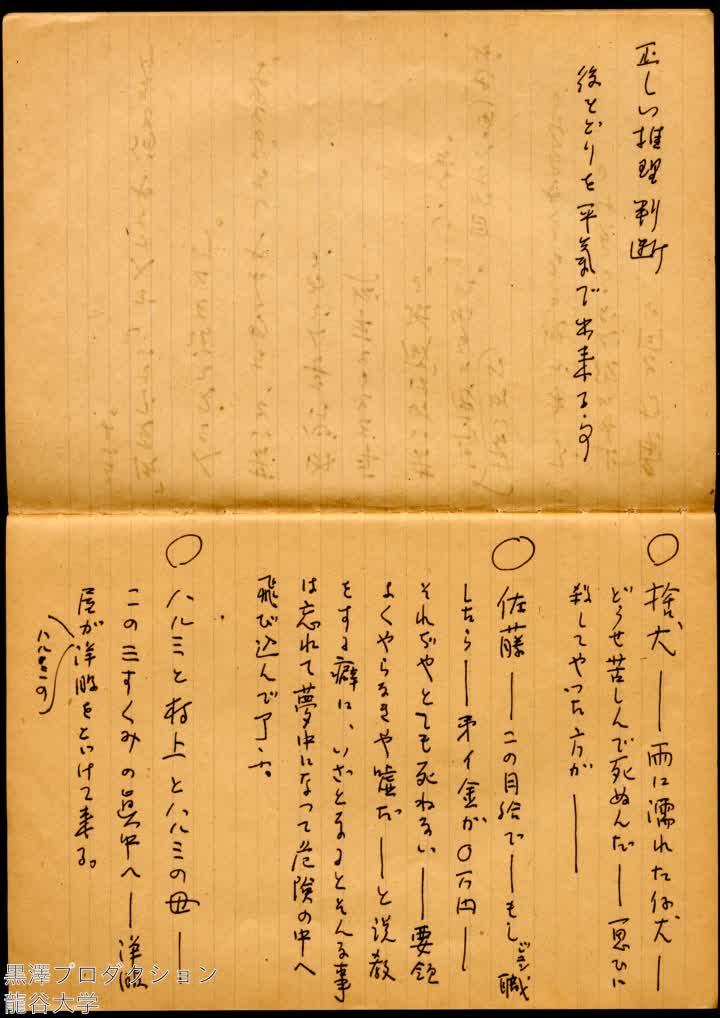 正しい推理判断
後もどりを平氣で出来る事
○ 捨犬――雨に濡れた仔犬――
どうせ苦しんで死ぬんだ――一思ひに
殺してやった方が――
○ 佐藤――この月給で――もし殉職
したら――弔イ金が〇万円――
それぢやとても死ねない――要領
よくやらなきや嘘だ――と説教
をする癖に、いざとなるとそんな事
は忘れて夢中になって危険の中へ
飛び込んで了ふ。
○ ハルミと村上とハルミの母――
この三すくみの眞中へ――洋服
屋が洋服をとゞけて来る。
ハルミの
黒澤プロダクション
龍谷大学